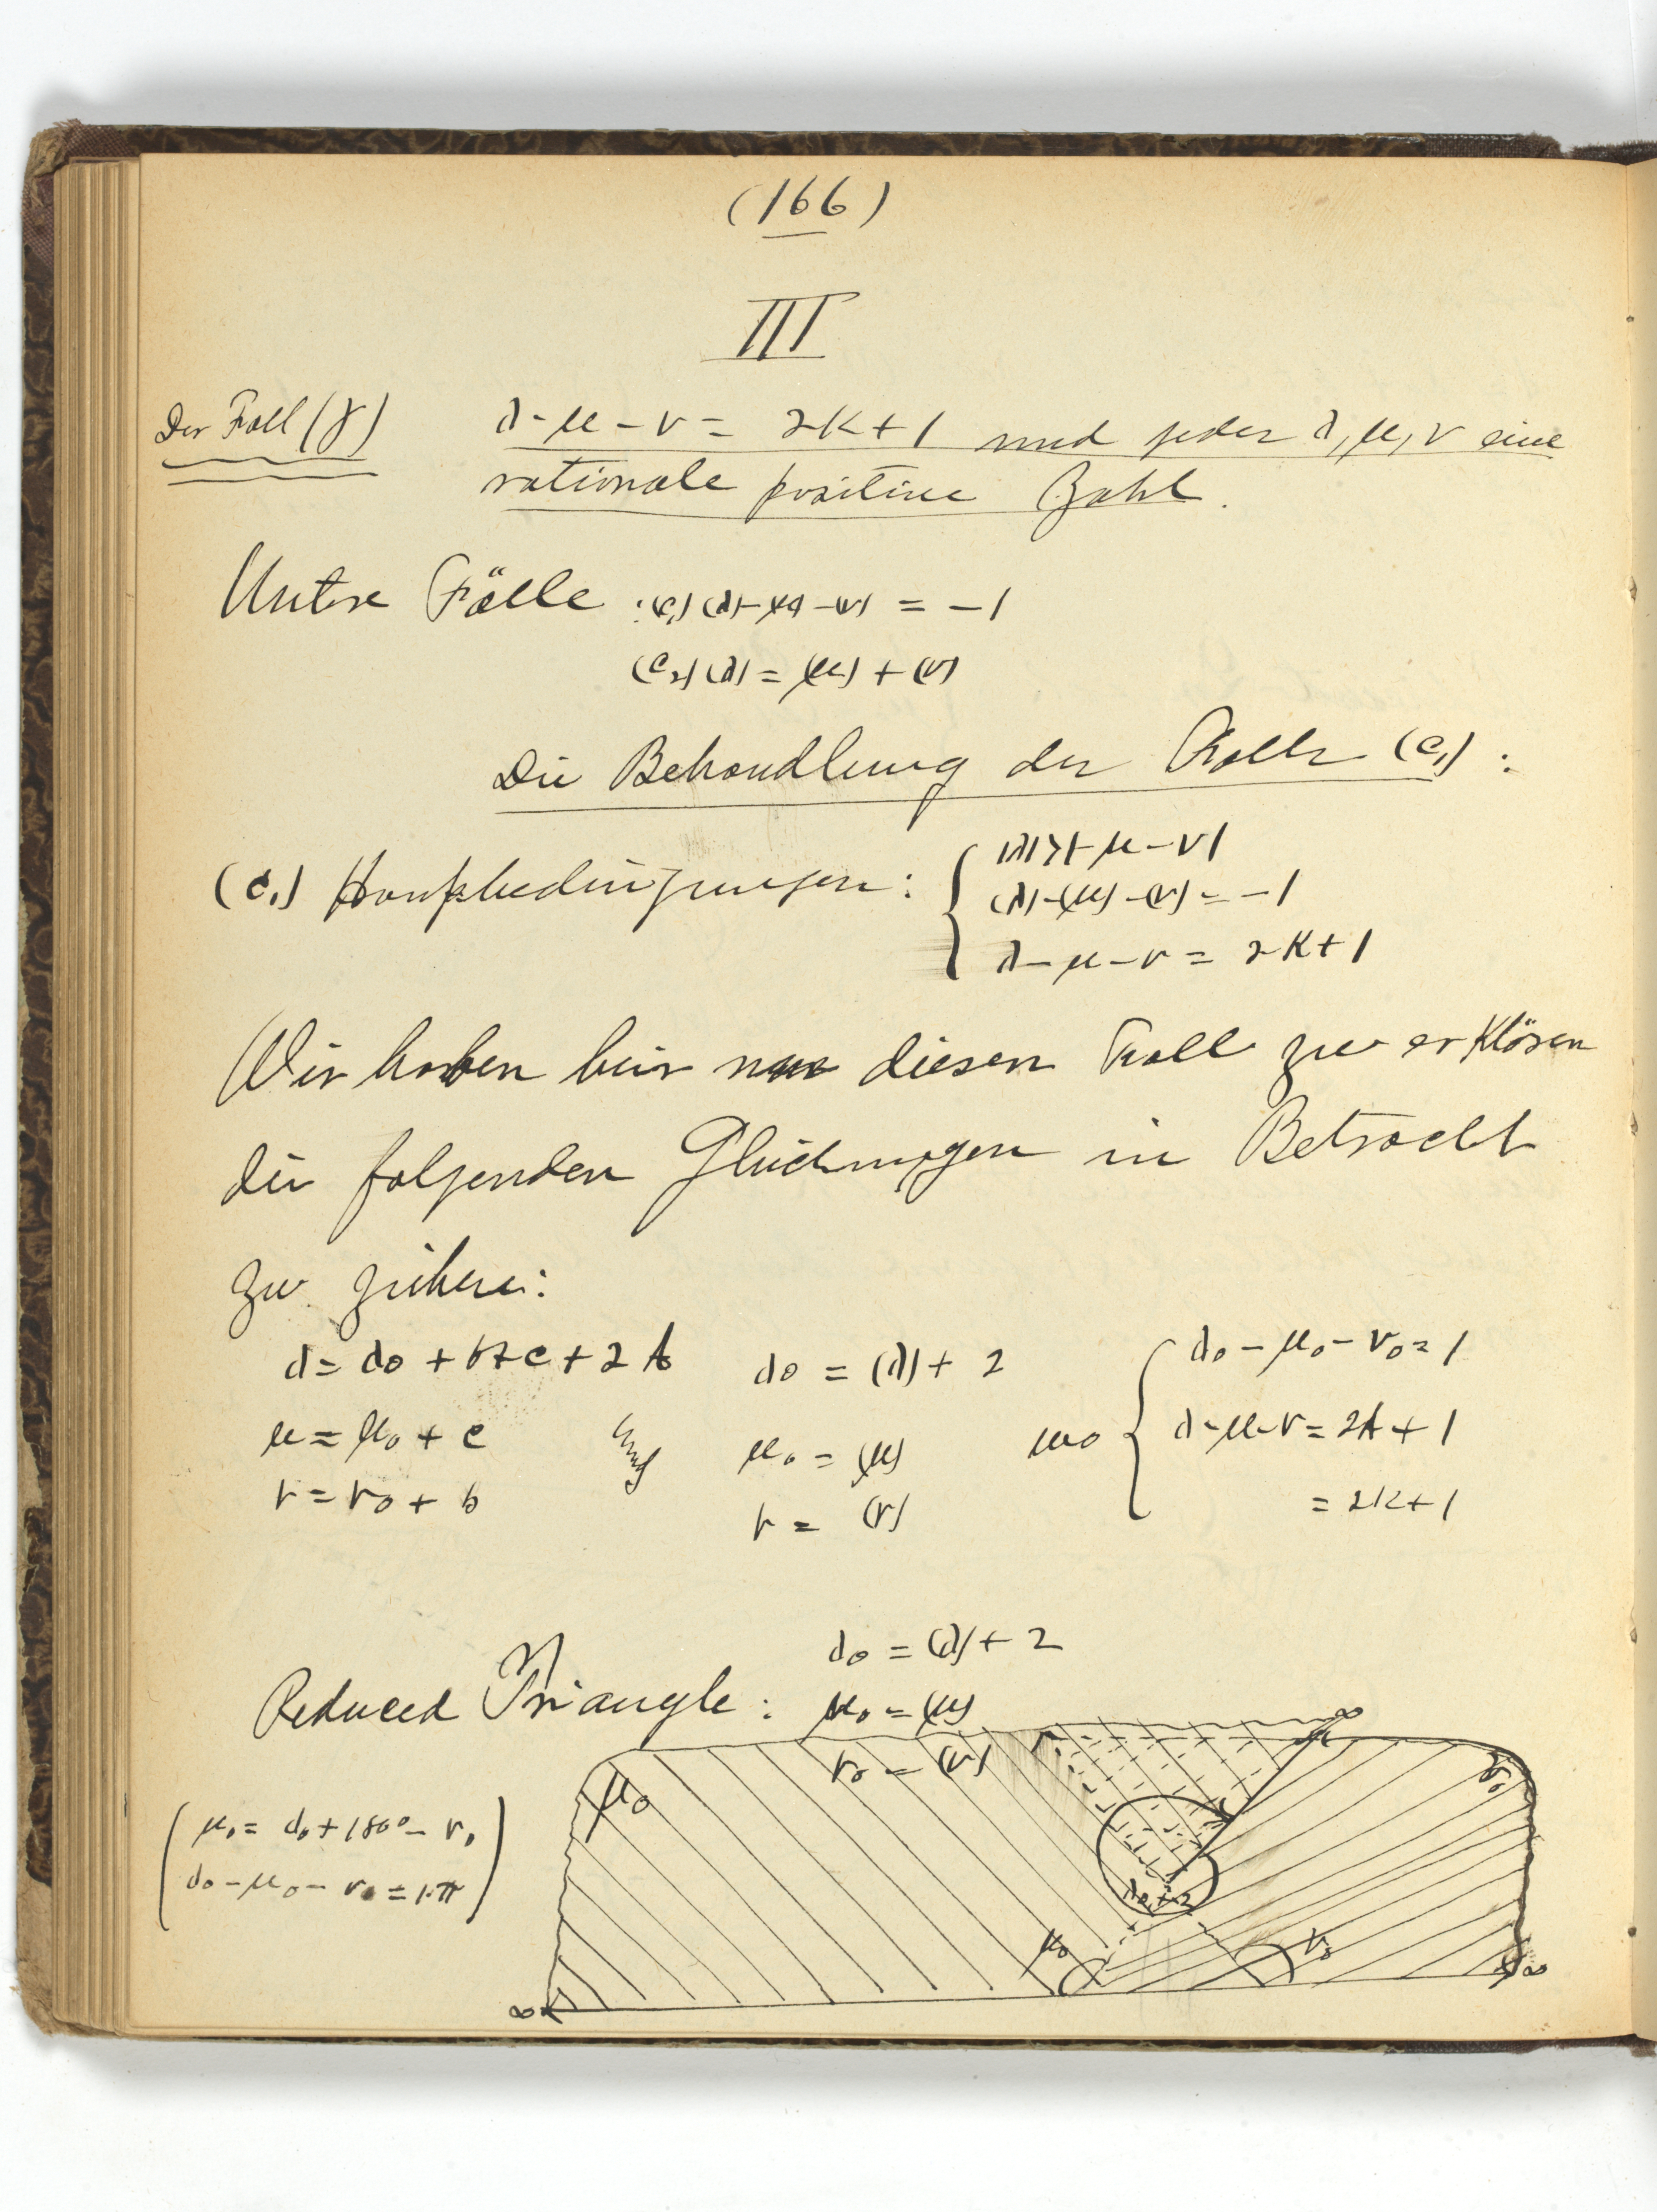 (166)
III
Der Fall (γ) λ-μ-ν = 2K+1 und jeder λ, μ, ν eine
rationale positive Zahl.
Untere Fälle : (c₁) (λ)-(μ)-(ν) = -1
(c₂) (λ) = (μ) + (ν)
Die Behandlung der Falls (c₁) :
(c₁) Hauptbedingungen : λ-μ-ν
(λ)-(μ)-(ν) = -1
λ-μ-ν = 2K+1
Wir haben hier nun diesen Fall zu erklären
die folgenden Gleichungen in Betracht
zu ziehen:
λ = λ₀ + b + c + 2A λ₀ = (λ) + 2 λ₀ - μ₀ - ν₀ = 1
μ = μ₀ + c und μ₀ = (μ) wo λ-μ-ν = 2A + 1
ν = ν₀ + b ν = (ν) = 2K+1
λ₀ = (λ) + 2
Reduced Triangle : μ₀ = (μ)
ν₀ = (ν)
∞
μ₀ ν₀
μ₀ = λ₀ + 180° - ν₀
λ₀ - μ₀ - ν₀ = 1·π
λ₀+2
μ₀ ν₀
∞ ∞